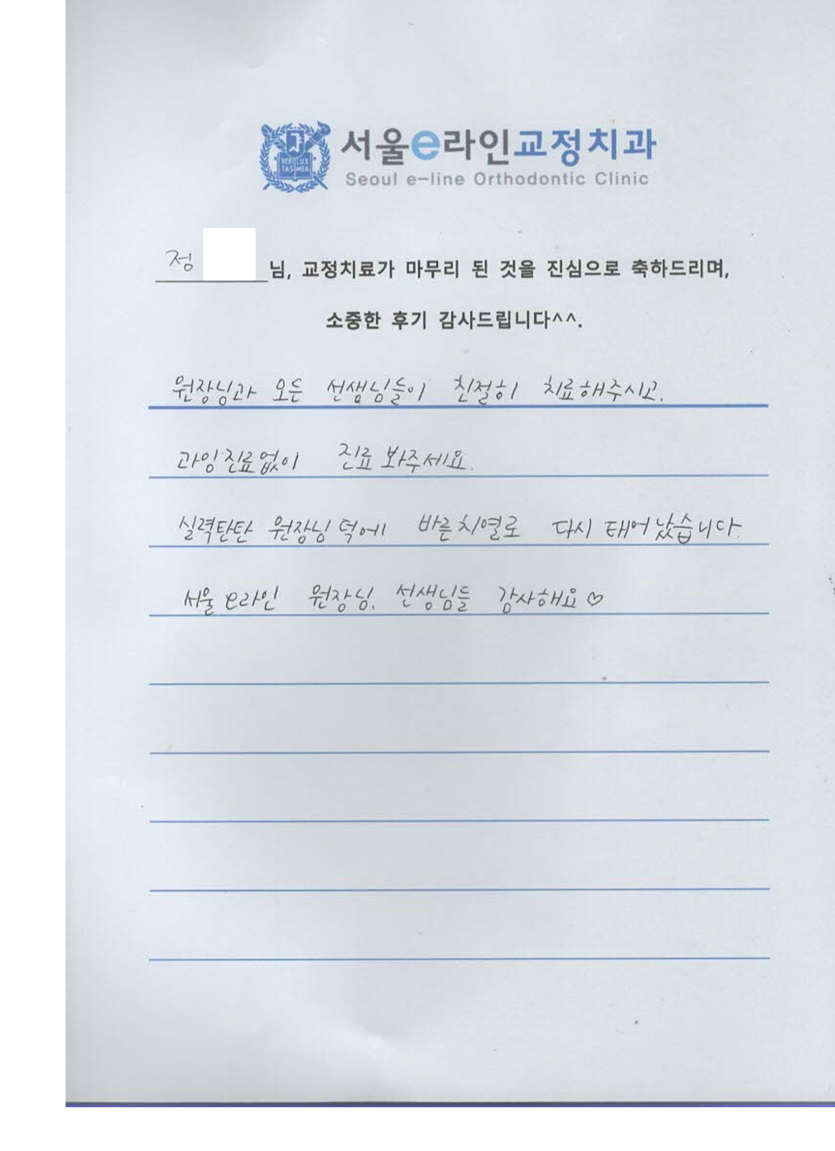 서울e라인교정치과
Seoul e-line Orthodontic Clinic
정 님, 교정치료가 마무리 된 것을 진심으로 축하드리며,
소중한 후기 감사드립니다^^.
원장님과 모든 선생님들이 친절히 치료해주시고.
과잉진료없이 진료 봐주세요.
실력탄탄 원장님 덕에 바른치열로 다시 태어났습니다.
서울 e라인 원장님, 선생님들 감사해요♡